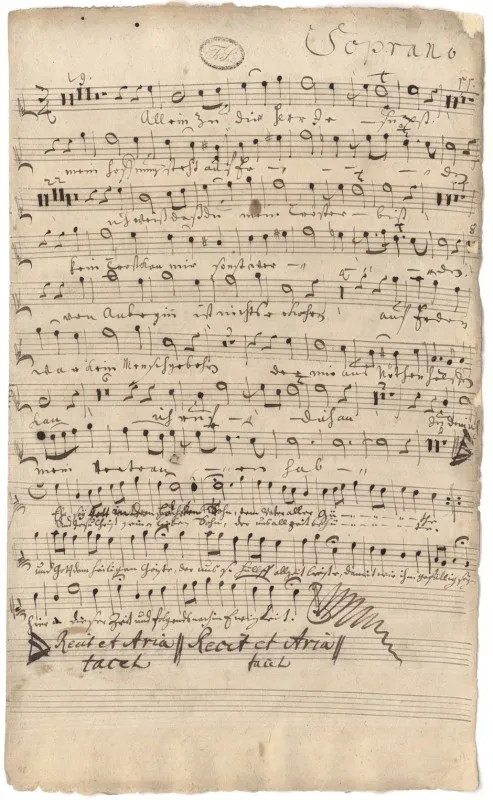 Soprano
19.
Allein zu dir Herr Je - su
mein hoffnung steht auf Er - - - den
22
ich weiß daß du mein Tröster - bist
kein Trost kan mir sonst wer - - - den
von Anbeginn ist nichts erkohren auf Erden
war kein Mensch gebohren der mir aus Nöthen helffen
kan ich ruff - dich an
mein vertrau - en hab -
Ehr sey Gott in dem höchsten Thron, dem Vater aller Gü - - - te
Und Jesu Christ seinen lieben Sohn, der uns allzeit behü - - - te
und Gott dem heiligen Geiste, der uns sein hülff allzeit leiste, damit wir ihm gefällig seyn
hier in dieser Zeit und folgends nach in Ewigkeit.
Recit et Aria Recit et Aria
tacet tacet